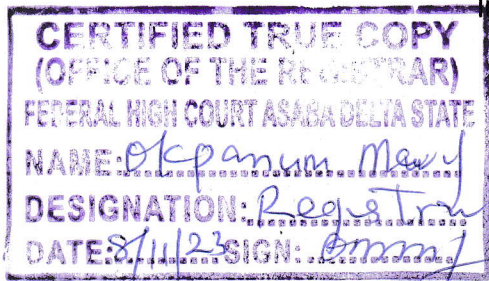 CERTIFIED TRUE COPY
(OFFICE OF THE REGISTRAR)
FEDERAL HIGH COURT ASABA DELTA STATE
NAME: Okpanum Mary
DESIGNATION: Registrar
DATE: 8/11/23 SIGN: